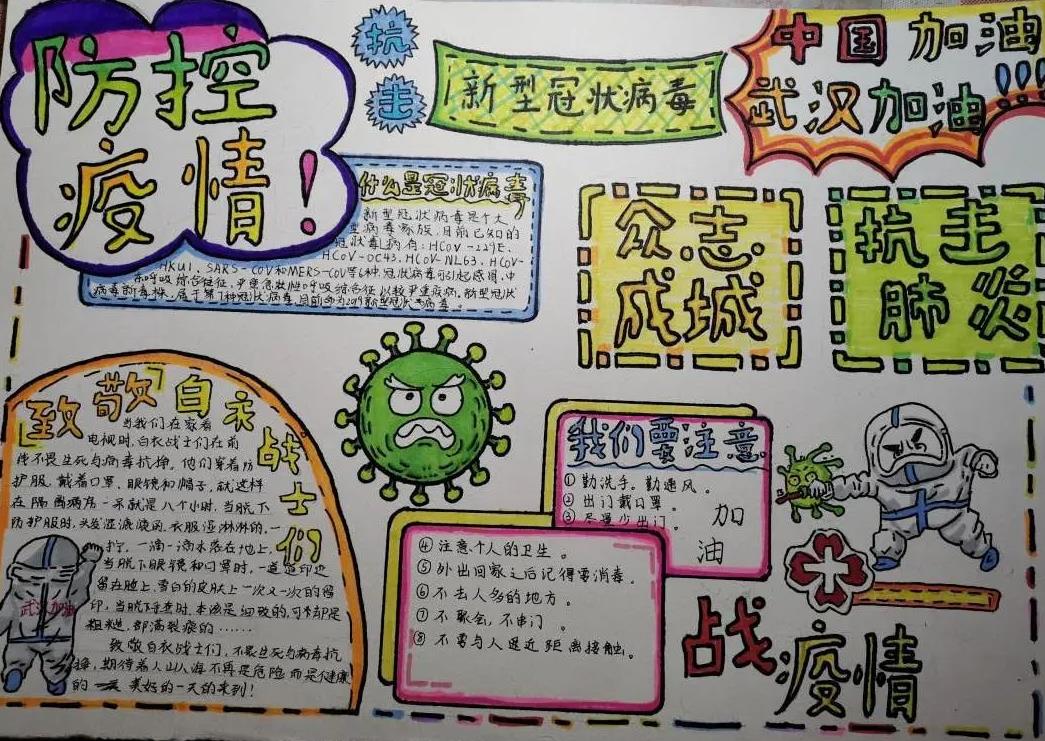 防控
疫情!
抗
击
新型冠状病毒
中国加油
武汉加油!!!
什么是冠状病毒
新型冠状病毒是个大
型病毒家族,目前已知的
冠状毒病有:HCoV-229E.
HCoV-OC43、HCoV-NL63、HCoV-
HKU1、SARS-COV和MERS-COV等6种,冠状病毒可引起感冒、中
众志
成城
抗击
肺炎
致敬白衣
战士们
当我们在家看
电视时,白衣战士们在前
线不畏生死与病毒抗挣。他们穿着防
护服、戴着口罩、眼镜和帽子,就这样
在隔离病房一呆就是八个小时,当脱下
防护服时,头发湿漉漉的,衣服湿淋淋的,一
拧,一滴一滴水落在地上,
当脱下眼镜和口罩时,一道道印迹
留在脸上,雪白的皮肤上一次又一次的留
印,当脱下手套时,本该是细致的,可却是
粗糙,部满裂痕的……
致敬白衣战士们,不畏生死与病毒抗
挣,期待着人山人海不再是危险而是健康
的 美好的一天的来到!
武汉加油
我们要注意
①勤洗手。勤通风。
②出门戴口罩。
③尽量少出门。
加
油
④注意个人的卫生。
⑤外出回家之后记得要消毒。
⑥不去人多的地方。
⑦不聚会,不串门。
⑧不要与人近距离接触。
战疫情